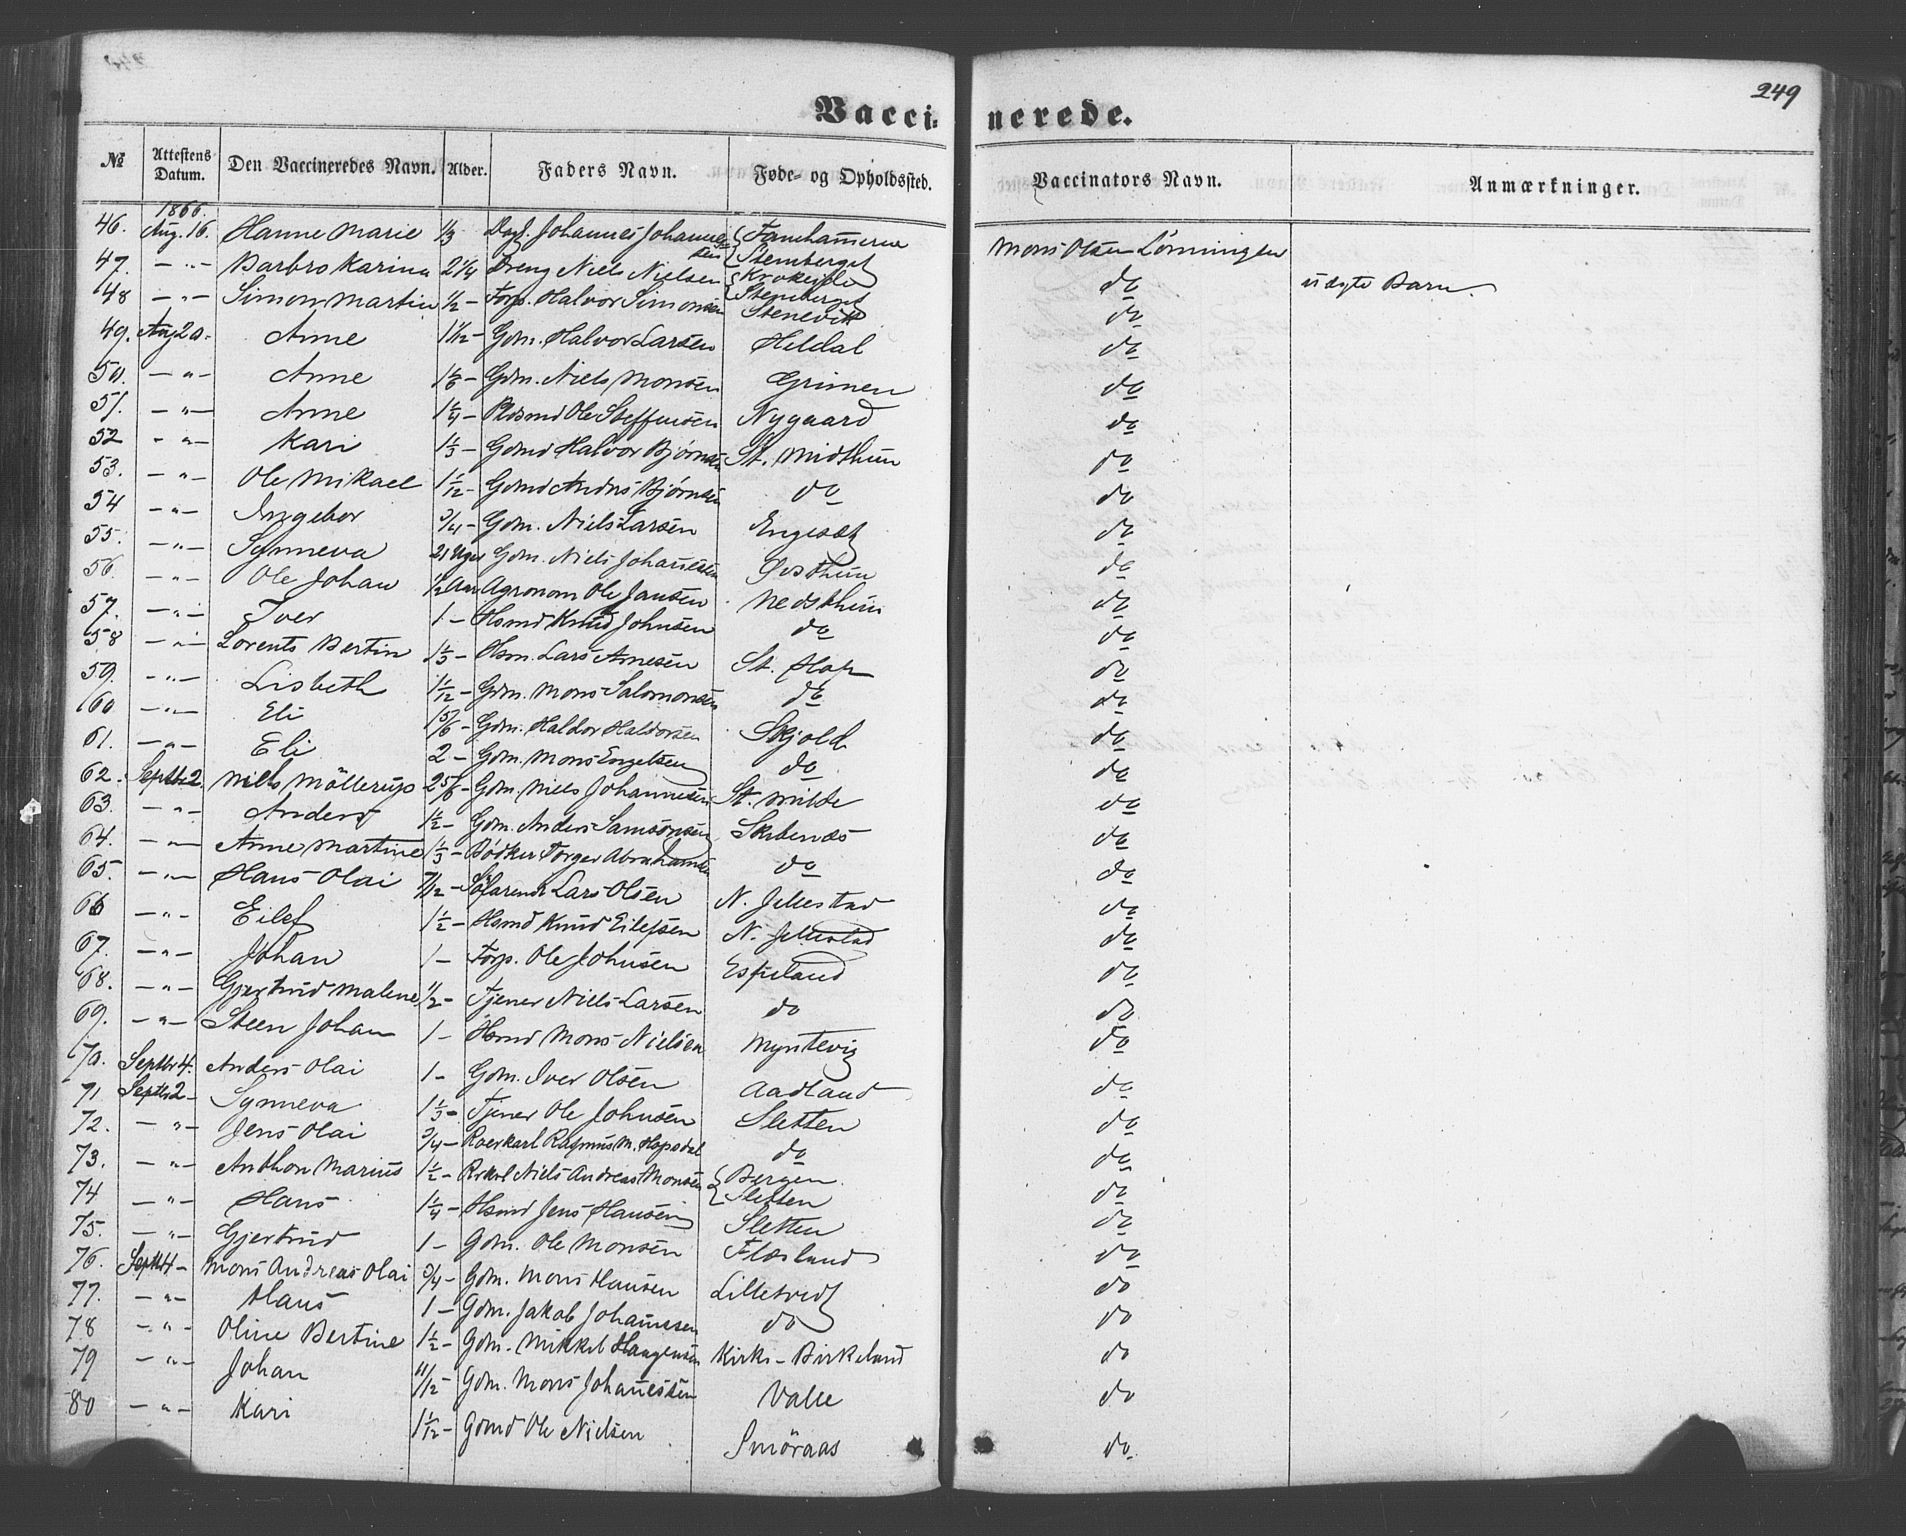 249
Vaccinerede.
№ Attestens Datum. Den Vaccineredes Navn. Alder. Faders Navn. Føde- og Opholdssted. Vaccinators Navn. Anmærkninger.
1866.
46. Aug. 16. Hanne Marie 1/3 Johannes Johannessen Stemberget Mons Olsen Lönningen
47. — " — Barbro Karina 2 1/4 Dreng Niels Nielsen Krokeide Stemberget do uægte Barn.
48 — " — Simon Martin 1/2 — Forp. Halvor Simonsen Stenevik do
49. Aug 20. Anne 1 1/12 — Gdm. Halvor Larsen Heldal do
50. — " — Anne 1 1/6 — Gdm. Niels Monsen Grimen do
51. — " — Anne 1 1/4 — Plssmd Ole Steffensen Nygaard do
52 — " — Kari 1 1/3 — Gdmd Halvor Bjørnsen St. Midthun do
53. — " — Ole Mikael 1 1/12 — Gdmd Anders Bjørnsen do do
54 — " — Ingebor 3/4 — Gdm. Niels Larsen Engesæt do
55. — " — Synneva 21 Uger Gdm. Niels Johannessen Østhun do
56. — " — Ole Johan 1/2 Aar Agronom Ole Jansen Nedsthun do
57. — " — Iver 1 — Hsmd Knud Johnsen do do
58 — " — Lorents Bertin 1 1/3 — Hsm. Lars Arnesen St. Hop do
59. — " — Lisbeth 1 1/12 — Gdm. Mons Salomonsen do do
60 — " — Eli 1 5/6 — Gdm. Haldor Haldorsen Skjold do
61. — " — Eli 2 — Gdm. Mons Engelsen do do
62. Septbr 2. Niels Möllerup 2 5/6 — Gdm. Niels Johannesen St. Milde do
63. — " — Anders 1 1/2 — Gdm. Anders Samsonsen Skibenæs do
64. — " — Anne Martine 1 1/3 — Bödker Torger Abrahamsen do do
65. — " — Hans Olai 7/12 — Söfarende Lars Olsen N. Jellestad do
66 — " — Eilef 1 1/2 — Hsmd Knud Eilefsen N. Jellestad do
67. — " — Johan 1 — Forp. Ole Johnsen Espeland do
68. — " — Gjertrud Malene 1 1/2 — Tjener Niels Larsen do do
69. — " — Steen Johan 1 — Hsmd Mons Nielsen Myntevig do
70. Septbr 4. Anders Olai 1 — Gdm. Iver Olsen Aadland do
71 Septbr 2 — Synneva 1 1/3 — Tjener Ole Johnsen Sletten do
72. — " — Jens Olai 3/4 — Roerkarl Rasmus M. Hopsdal do do
73. — " — Anthon Marius 1 1/2 — Rrkarl Niels Andreas Monsen Bergen Sletten do
74 — " — Hans 1 1/4 — Hsmd Jens Hansen Sletten do
75. — " — Gjertrud 1 — Gdm. Ole Monsen Flæsland do
76. Septbr 4 — Mons Andreas Olai 3/4 — Gdm. Mons Hansen Lilletvedt do
77. — " — Hans 1 — Gdm. Jakob Johannessen do do
78 — " — Oline Bertine 1 1/2 — Gdm. Mikkel Haagensen Kirke-Birkeland do
79 — " — Johan 11/12 — Gdm. Mons Johannessen Valle do
80 — " — Kari 1 1/12 — Gdmd Ole Nielsen Smöraas do.